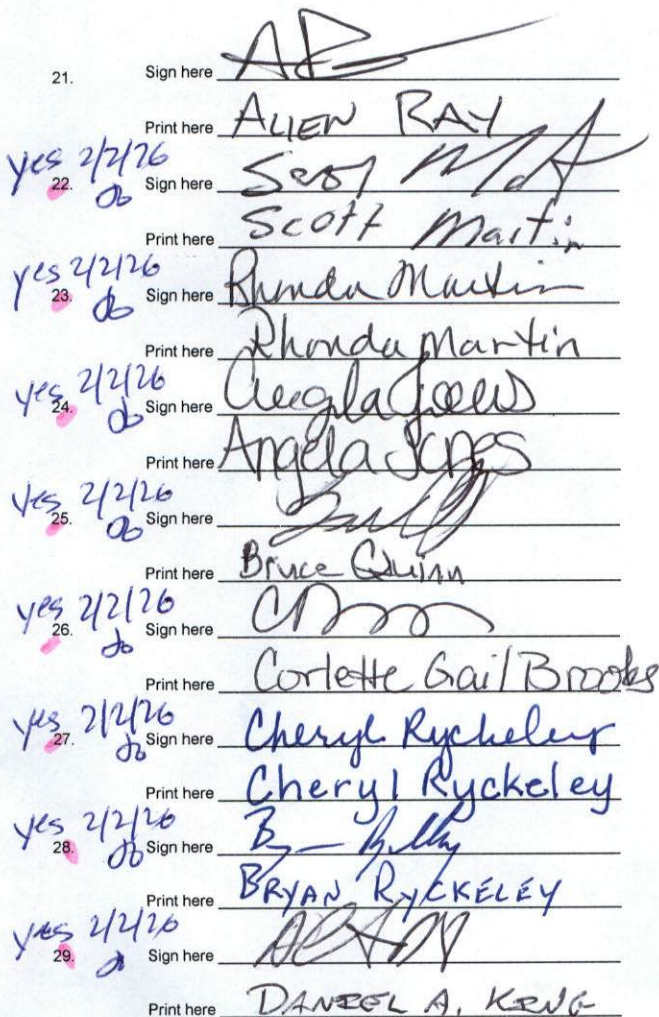 21. Sign here
Print here ALLEN RAY
yes 2/2/26
22. Sign here Scott Martin
Print here Scott Martin
yes 2/2/26
23. db Sign here Rhonda Martin
Print here Rhonda Martin
yes 2/2/26
24. db Sign here Angela Jones
Print here Angela Jones
yes 2/2/26
25. db Sign here
Print here Bruce Quinn
yes 2/2/26
26. db Sign here
Print here Corlette Gail Brooks
yes 2/2/26
27. db Sign here Cheryl Ryckeley
Print here Cheryl Ryckeley
yes 2/2/26
28. db Sign here
Print here BRYAN RYCKELEY
yes 2/2/26
29. Sign here
Print here DANIEL A. KING